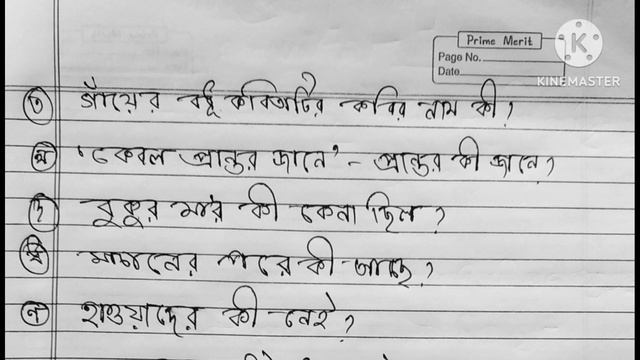 Prime Merit
Page No.
Date
KINEMASTER
ত) গাঁয়ের বধূ কবিতাটির কবির নাম কী?
থ) 'কেবল প্রান্তর জানে' - প্রান্তর কী জানে?
দ) বুকুর মা'র কী কেনা ছিল?
ধ) মাঠের পরে কী আছে?
ন) হাওয়াদের কী নেই?